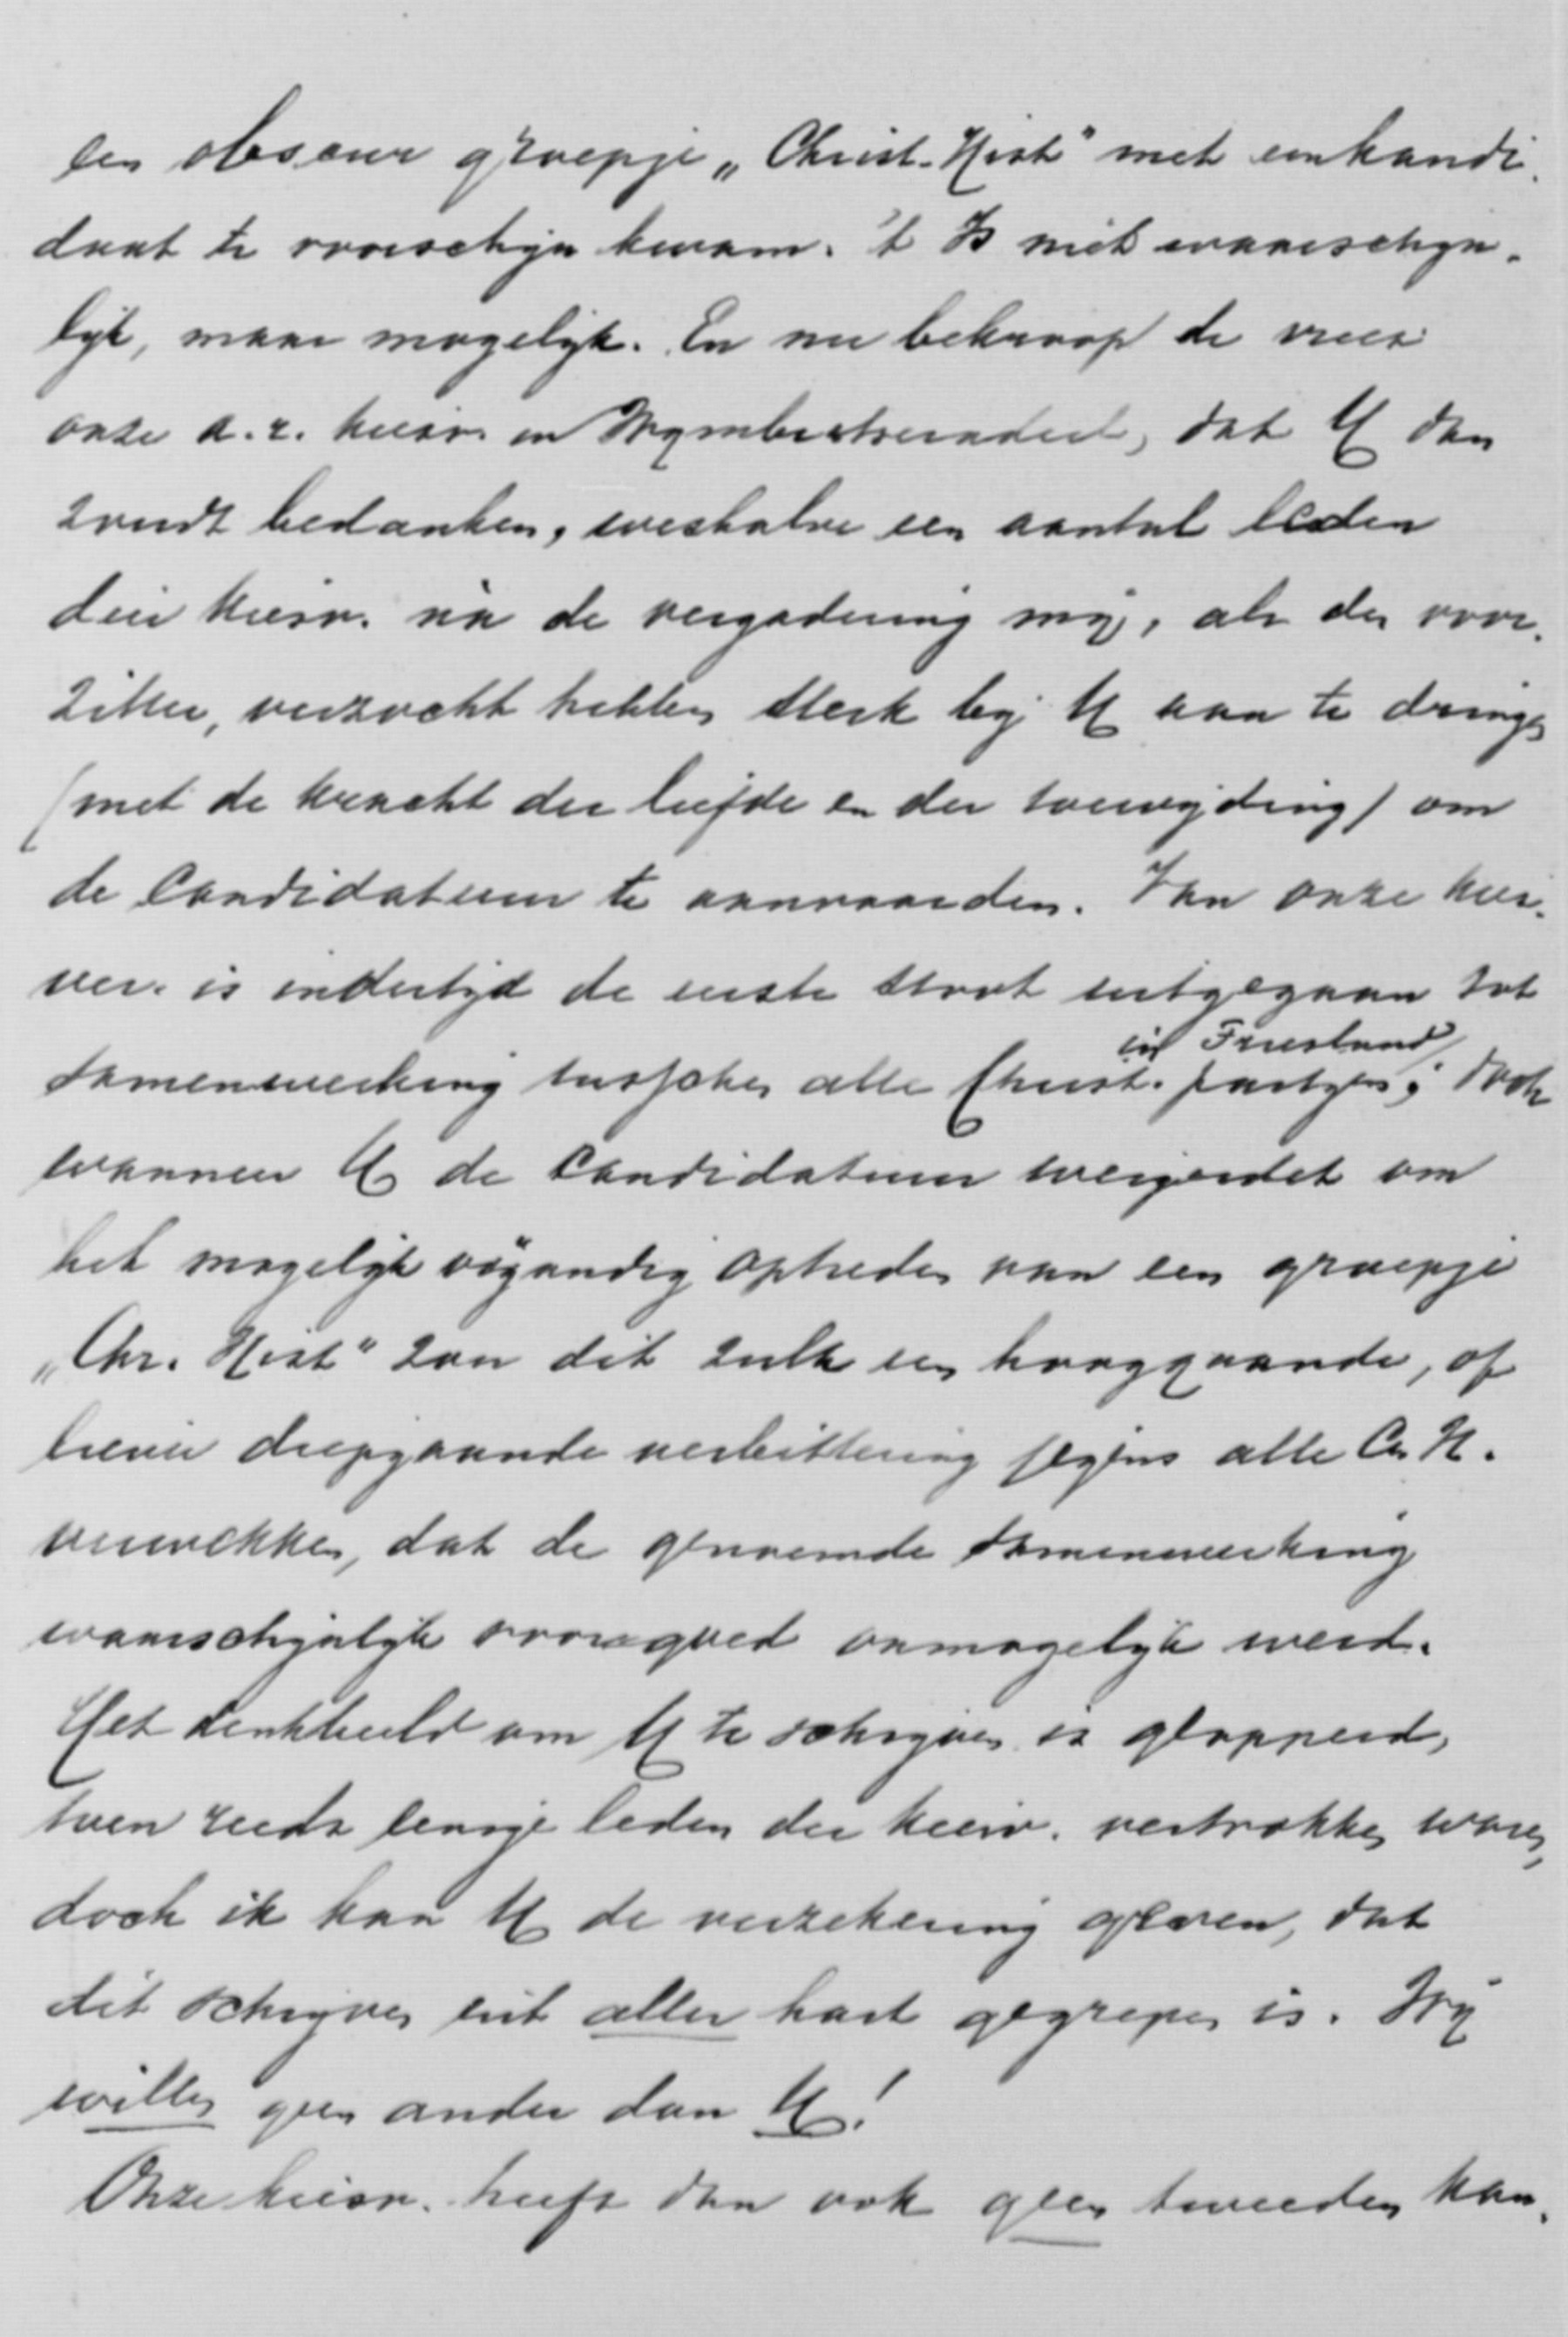 een obscuur groepje „Christ. Hist" met een kandi-
daat te voorschijn kwam. 't Is niet waarschijn-
lijk, maar mogelijk. En nu bekroop de vrees
onze a.r. kiesv. in Wymbritseradeel, dat U dan
zoudt bedanken, weshalve een aantal leden
dier kiesv. na de vergadering mij, als den voor-
zitter, verzocht hebben sterk bij U aan te dringen
(met de kracht der liefde en der toewijding) om
de Candidatuur te aanvaarden. Van onze kies-
ver. is indertijd de eerste stoot uitgegaan tot
samenwerking tusschen alle Christ. partijen in Friesland; doch
wanneer U de Candidatuur weigerdet om
het mogelijk vijandig optreden van een groepje
„Chr. Hist" zou dit zulk een hooggaande, of
liever diepgaande verbittering jegens alle C. H.
verwekken, dat de genoemde samenwerking
waarschijnlijk voorgoed onmogelijk werd.
Het denkbeeld om U te schrijven is geopperd,
toen reeds eenige leden der kiesv. vertrokken waren,
doch ik kan U de verzekering geven, dat
dit schrijven uit aller hart gegrepen is. Wij
willen geen ander dan U!
Onze kiesv. heeft dan ook geen tweeden kan-